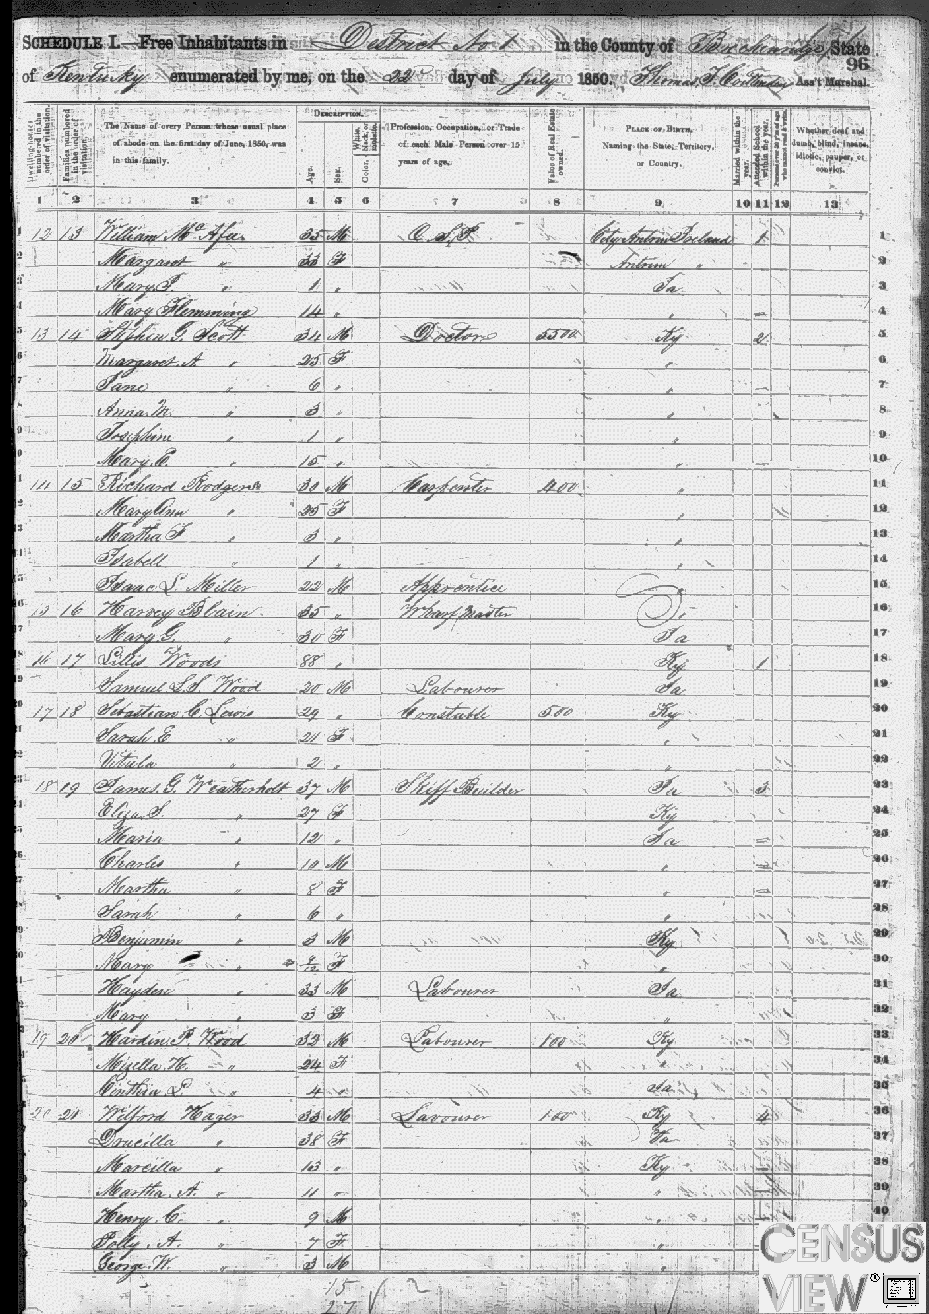 SCHEDULE I.—Free Inhabitants in District No. 1 in the County of Breckenridge, State
96
of Kentucky enumerated by me, on the 22 day of July 1850. Thomas J. Ass't Marshal.
Dwelling-houses numbered in the order of visitation.
Families numbered in the order of visitation.
The Name of every Person whose usual place of abode on the first day of June, 1850, was in this family.
DESCRIPTION.
Age.
Sex.
Color, White, black, or mulatto.
Profession, Occupation, or Trade of each Male Person over 15 years of age.
Value of Real Estate owned.
PLACE OF BIRTH, Naming the State, Territory, or Country.
Married within the year.
Attended School within the year.
Persons over 20 y'rs of age who cannot read & write.
Whether deaf and dumb, blind, insane, idiotic, pauper, or convict.
1 2 3 4 5 6 7 8 9 10 11 12 13
12 13 William Mc Afee 35 M Cty Antrim Ireland 1 1
Margaret " 33 F Antrim " 2
Mary J. " 1 " Ia 3
Mary Flemming 14 " " 4
13 14 Stephen G. Scott 34 M Doctor 5500 Ky 2 5
Margaret A " 25 F " 6
Jane " 6 " " 7
Anna M. " 3 " 8
Josephine 1 " " 9
Mary E. " 15 " 10
14 15 Richard Rodgers 30 M Carpenter 400 " 11
Mary Ann " 25 F " 12
Martha F " 3 " " 13
Isabell " 1 " 14
Isaac L. Miller 22 M Apprentice 15
15 16 Harvey Blain 35 " Wharf Master 16
Mary G. " 30 F Ia 17
16 17 Lillis Woods 88 " Ky 1 18
Samuel L.S. Wood 20 M Labourer Ia 19
17 18 Sebastian C Lewis 29 " Constable 500 Ky 20
Sarah E " 21 F " 21
Vitula " 2 " " 22
18 19 James G. Weatherholt 37 M Skiff Builder Ia 3 23
Eliza S. " 27 F Ky 24
Maria " 12 " Ia 25
Charles " 10 M " 26
Martha " 8 F " 27
Sarah " 6 " " 28
Benjamin " 3 M Ky 29
Mary " 9/12 F " 30
Hayden " 33 M Labourer Ia 31
Mary " 3 F " 32
19 20 Hardin P. Wood 32 M Labourer 100 Ky 33
Mizella H. " 24 F " 34
Cinthia L. " 4 " Ia 35
20 21 Wilford Hager 33 M Lavourer 100 Ky 4 36
Drucilla " 38 F Ia 37
Marcilla " 13 " Ky 38
Martha. A. " 11 " " 39
Henry C. " 9 M " 40
Polly. A. " 7 F "
George. W. " 3 M "
15
27 2
CENSUS
VIEW®